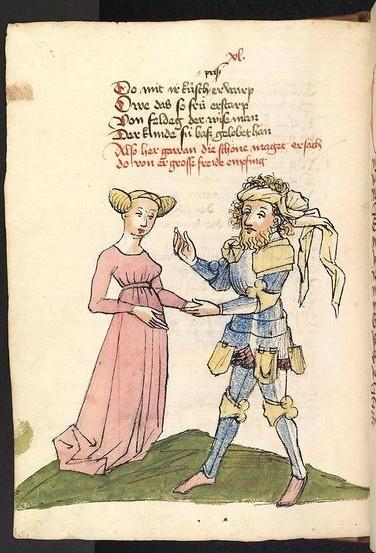 xl.
pris
Do mit ir küsch erwarp
Owe das so frü erstarp
Von feldeg der wise man
Der kunde sú baß gelobet han
Also her gawan die schöne maget ersach
do von er grosse freide enpfing